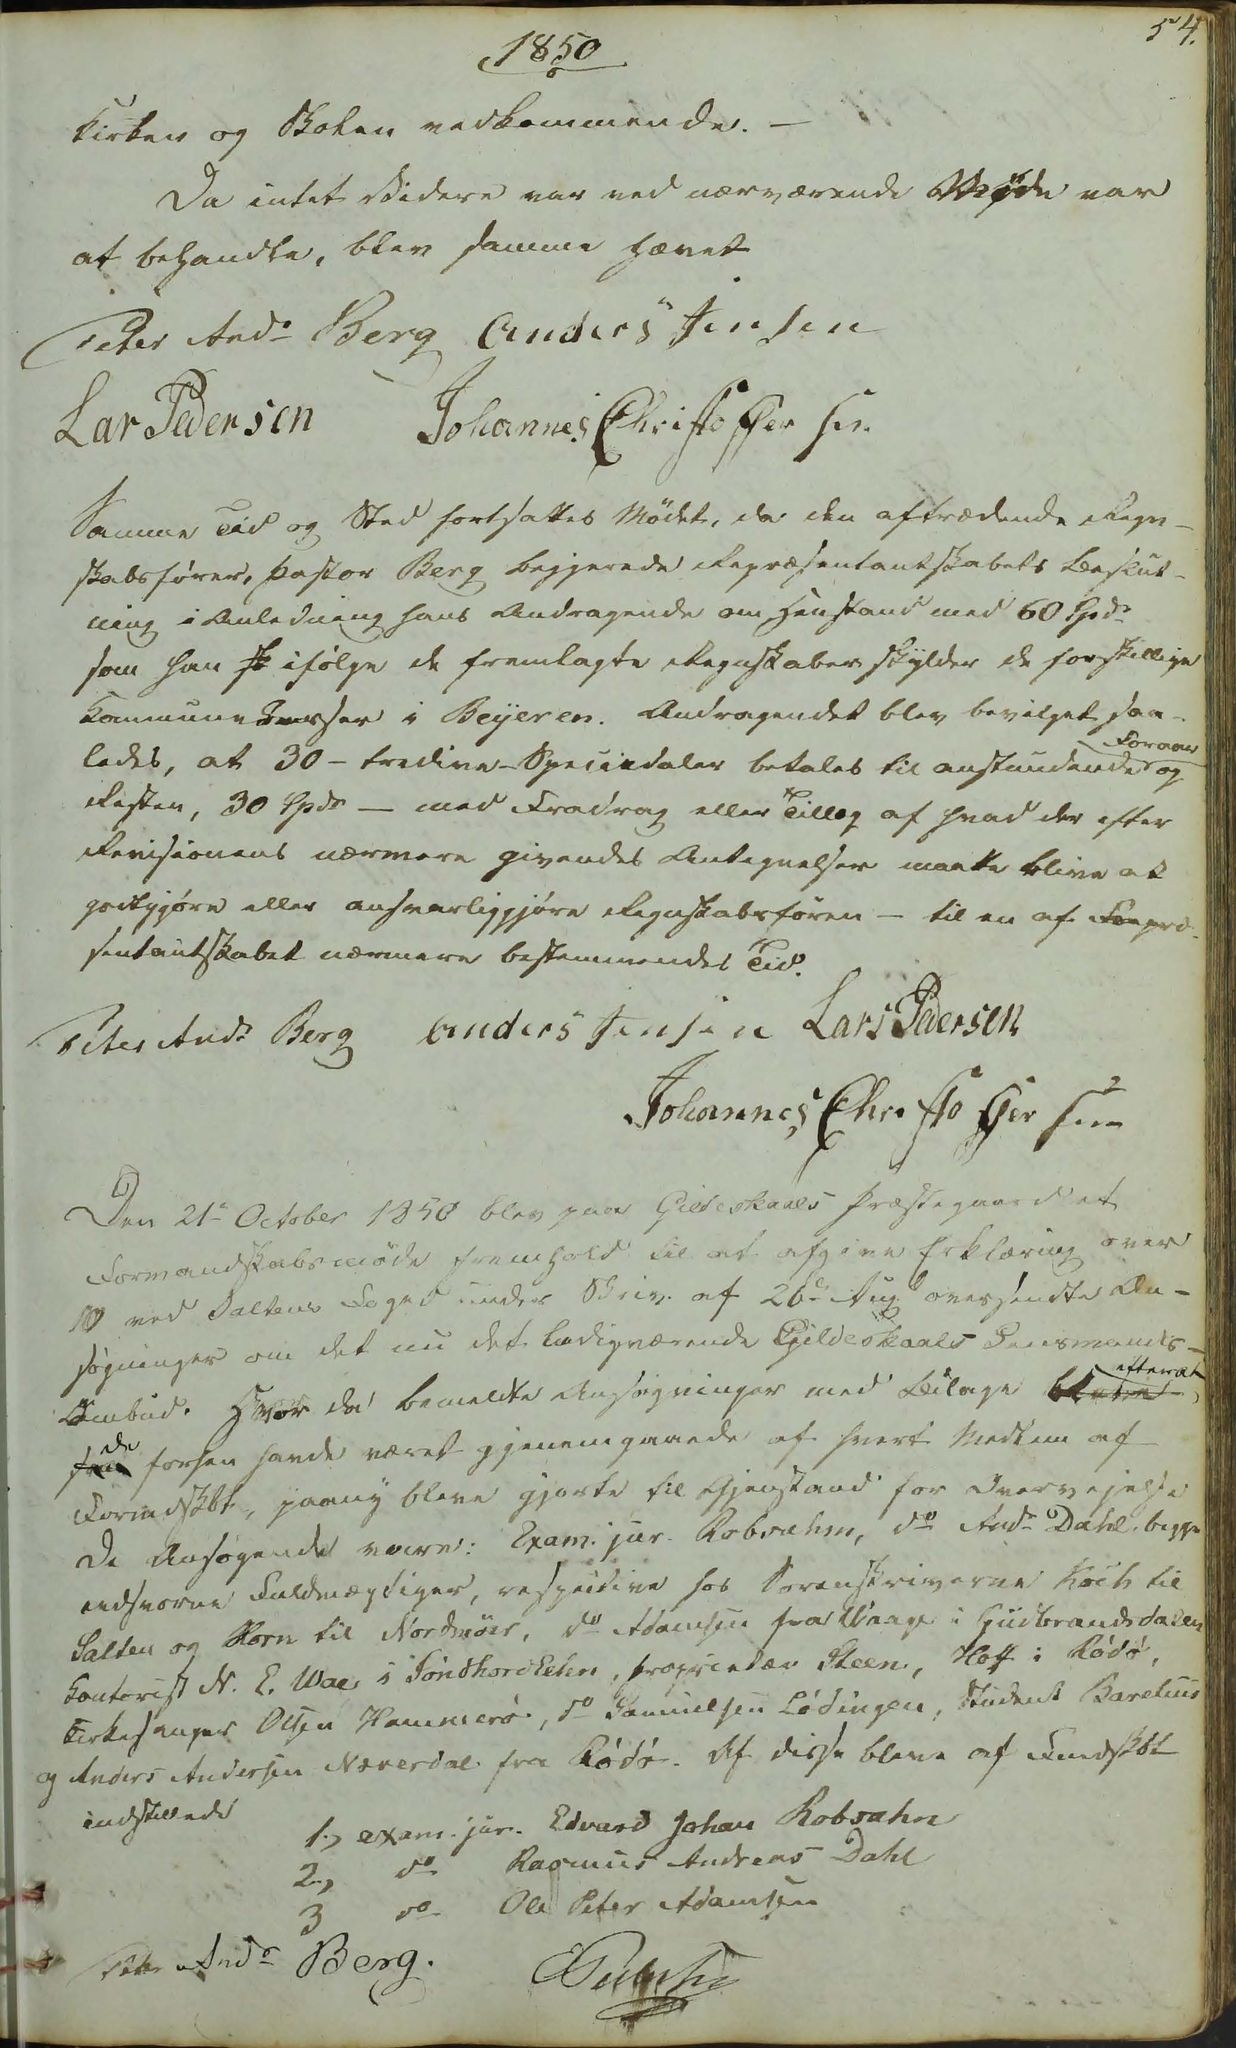 54.
1850
Kirken og Skolen vedkommende. —
Da intet videre var ved nærværende Møde var
at behandle, blev samme hævet
Peter And. Berg Anders Jensen
Lar Pedersen Johannes Christoffersen.
Samme Tid og Sted fortsattes Mödet, da den aftrædende Regn-
skabsfører, Pastor Berg begjerede Repræsentantskabets Beslut-
ning i Anledning hans Andragende om Henstand med 60 Spd.
som han ifølge de fremlagte Regnskaber skylder de forskillige
Kommune Kasser i Beijeren. Andragendet blev bevilget saa-
ledes, at 30 - tredive - Speciedaler betales til anstundende Foraar og
Resten, 30 Spd — med Fradrag eller Tillæg af hvad der efter
Revisionens nærmere givendes Antegnelser maatte blive at
godtgjöre eller ansvarliggjöre Regnskabsföreren — til en af Repræ-
sentantskabet nærmere bestemmendes Tid.
Peter And. Berg Anders Jensen Lars Pedersen
Johannes Christoffersen
Den 21de October 1850 blev paa Gildeskaals Præstegaard et
Formandskabsmöde fremholdt til at afgive Erklæring over
10 ved Saltens Foged under Skriv. af 26de Aug oversendte An-
søgninger om det nu det ledigværende Gildeskaals Lensmands-
Ombud. Hvor da bemeldte Ansøgninger med Bilage efterat
de forhen havde været gjenemgaaede af hvert Medlem af
Formdskbt., paany bleve gjorte til Gjenstand for Overvejelse
De Ansøgende vare: Exam. jur. Robsahm, do And. Dahl, begge
edsvorne Fuldmægtiger, respective hos Sorenskriverne Koch til
Salten og Horn til Nordmöer, do Adamsen fra Waage i Gudbrandsdalen
Kontorist N. E. Wae i Söndhordlehn, Proprietær Steen, Hoff i Rödö,
Kirkesanger Olsen Hammerö, do Samuelsen Lödingen, Student Barelius
og Anders Andersen Næverdal fra Rödö. Af disse bleve af Fmdskbt
indstillede
1., exam. jur. Edvard Johan Robsahm
2., do Rasmus Andreas Dahl
3 do Ole Peter Adamsen
Peter And. Berg.